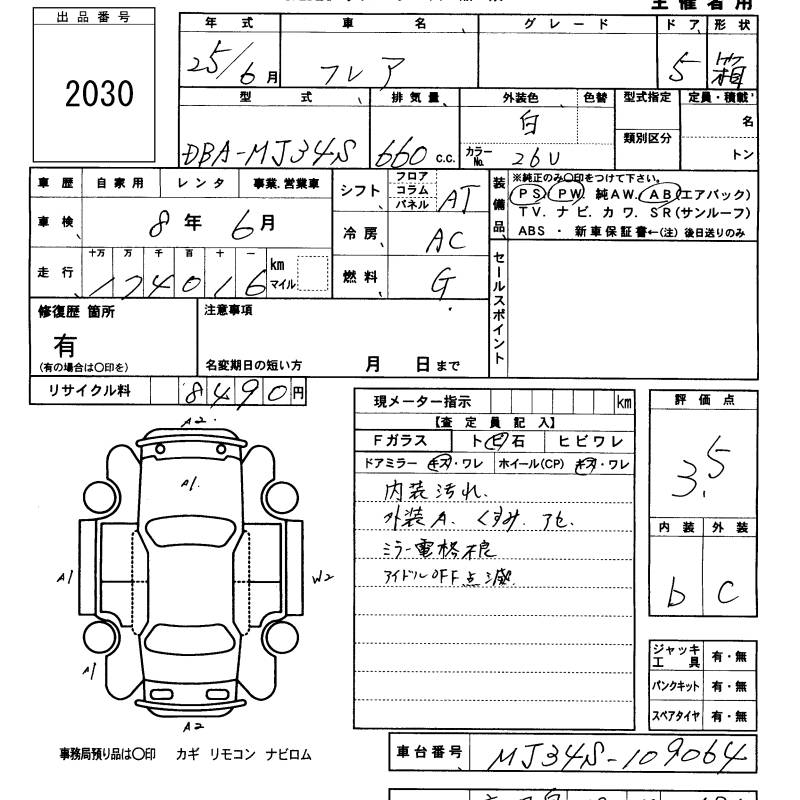 主催者用
出品番号
2030
年式 車名 グレード ドア 形状
25/6月 フレア 5 箱
型式 排気量 外装色 色替 型式指定 定員・積載
DBA-MJ34S 660 c.c. 白 類別区分 名
カラーNo. 26U トン
車歴 自家用 レンタ 事業.営業車
車検 8年 6月
走行 十万 万 千 百 十 一 km マイル
174016
シフト フロア コラム パネル AT
冷房 AC
燃料 G
装備品
※純正のみ〇印をつけて下さい。
PS. PW. 純AW. AB(エアバック)
TV. ナビ. カワ. SR(サンルーフ)
ABS ・ 新車保証書←(注)後日送りのみ
セールスポイント
修復歴 箇所
有
(有の場合は〇印を)
注意事項
名変期日の短い方 月 日まで
リサイクル料 8490円
現メーター指示 km
【査定員記入】
Fガラス トビ石 ヒビワレ
ドアミラー キズ・ワレ ホイール(CP) キズ・ワレ
内装汚れ.
外装A. くすみ. アセ.
ミラー電格不良
アイドルOFF点滅
評価点
3.5
内装 外装
b C
ジャッキ工具 有・無
パンクキット 有・無
スペアタイヤ 有・無
A2.
A1.
A1
W2
A1
A2
事務局預り品は〇印 カギ リモコン ナビロム
車台番号 MJ34S-109064